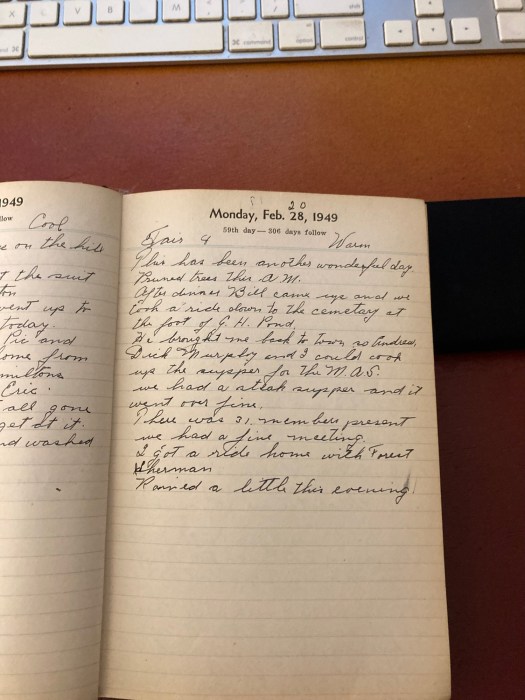 1949
low
Cool
e on the hill
t the suit
ton
vent up to
today
Pic and
ome from
miltons
Eric.
all gone
get at it.
nd washed
20
Monday, Feb. 28, 1949
59th day — 306 days follow
Fair & Warm
This has been another wonderful day.
Pruned trees this A.M.
After dinner Bill came up and we
took a ride down to the cemetary at
the foot of G. H. Pond.
He brought me back to town so Andrew,
Dick Murphy and I could cook
up the supper for the M.A.S.
we had a steak supper and it
went over fine.
There was 31 members present
we had a fine meeting.
I got a ride home with Forest
Sherman
Rained a little this evening